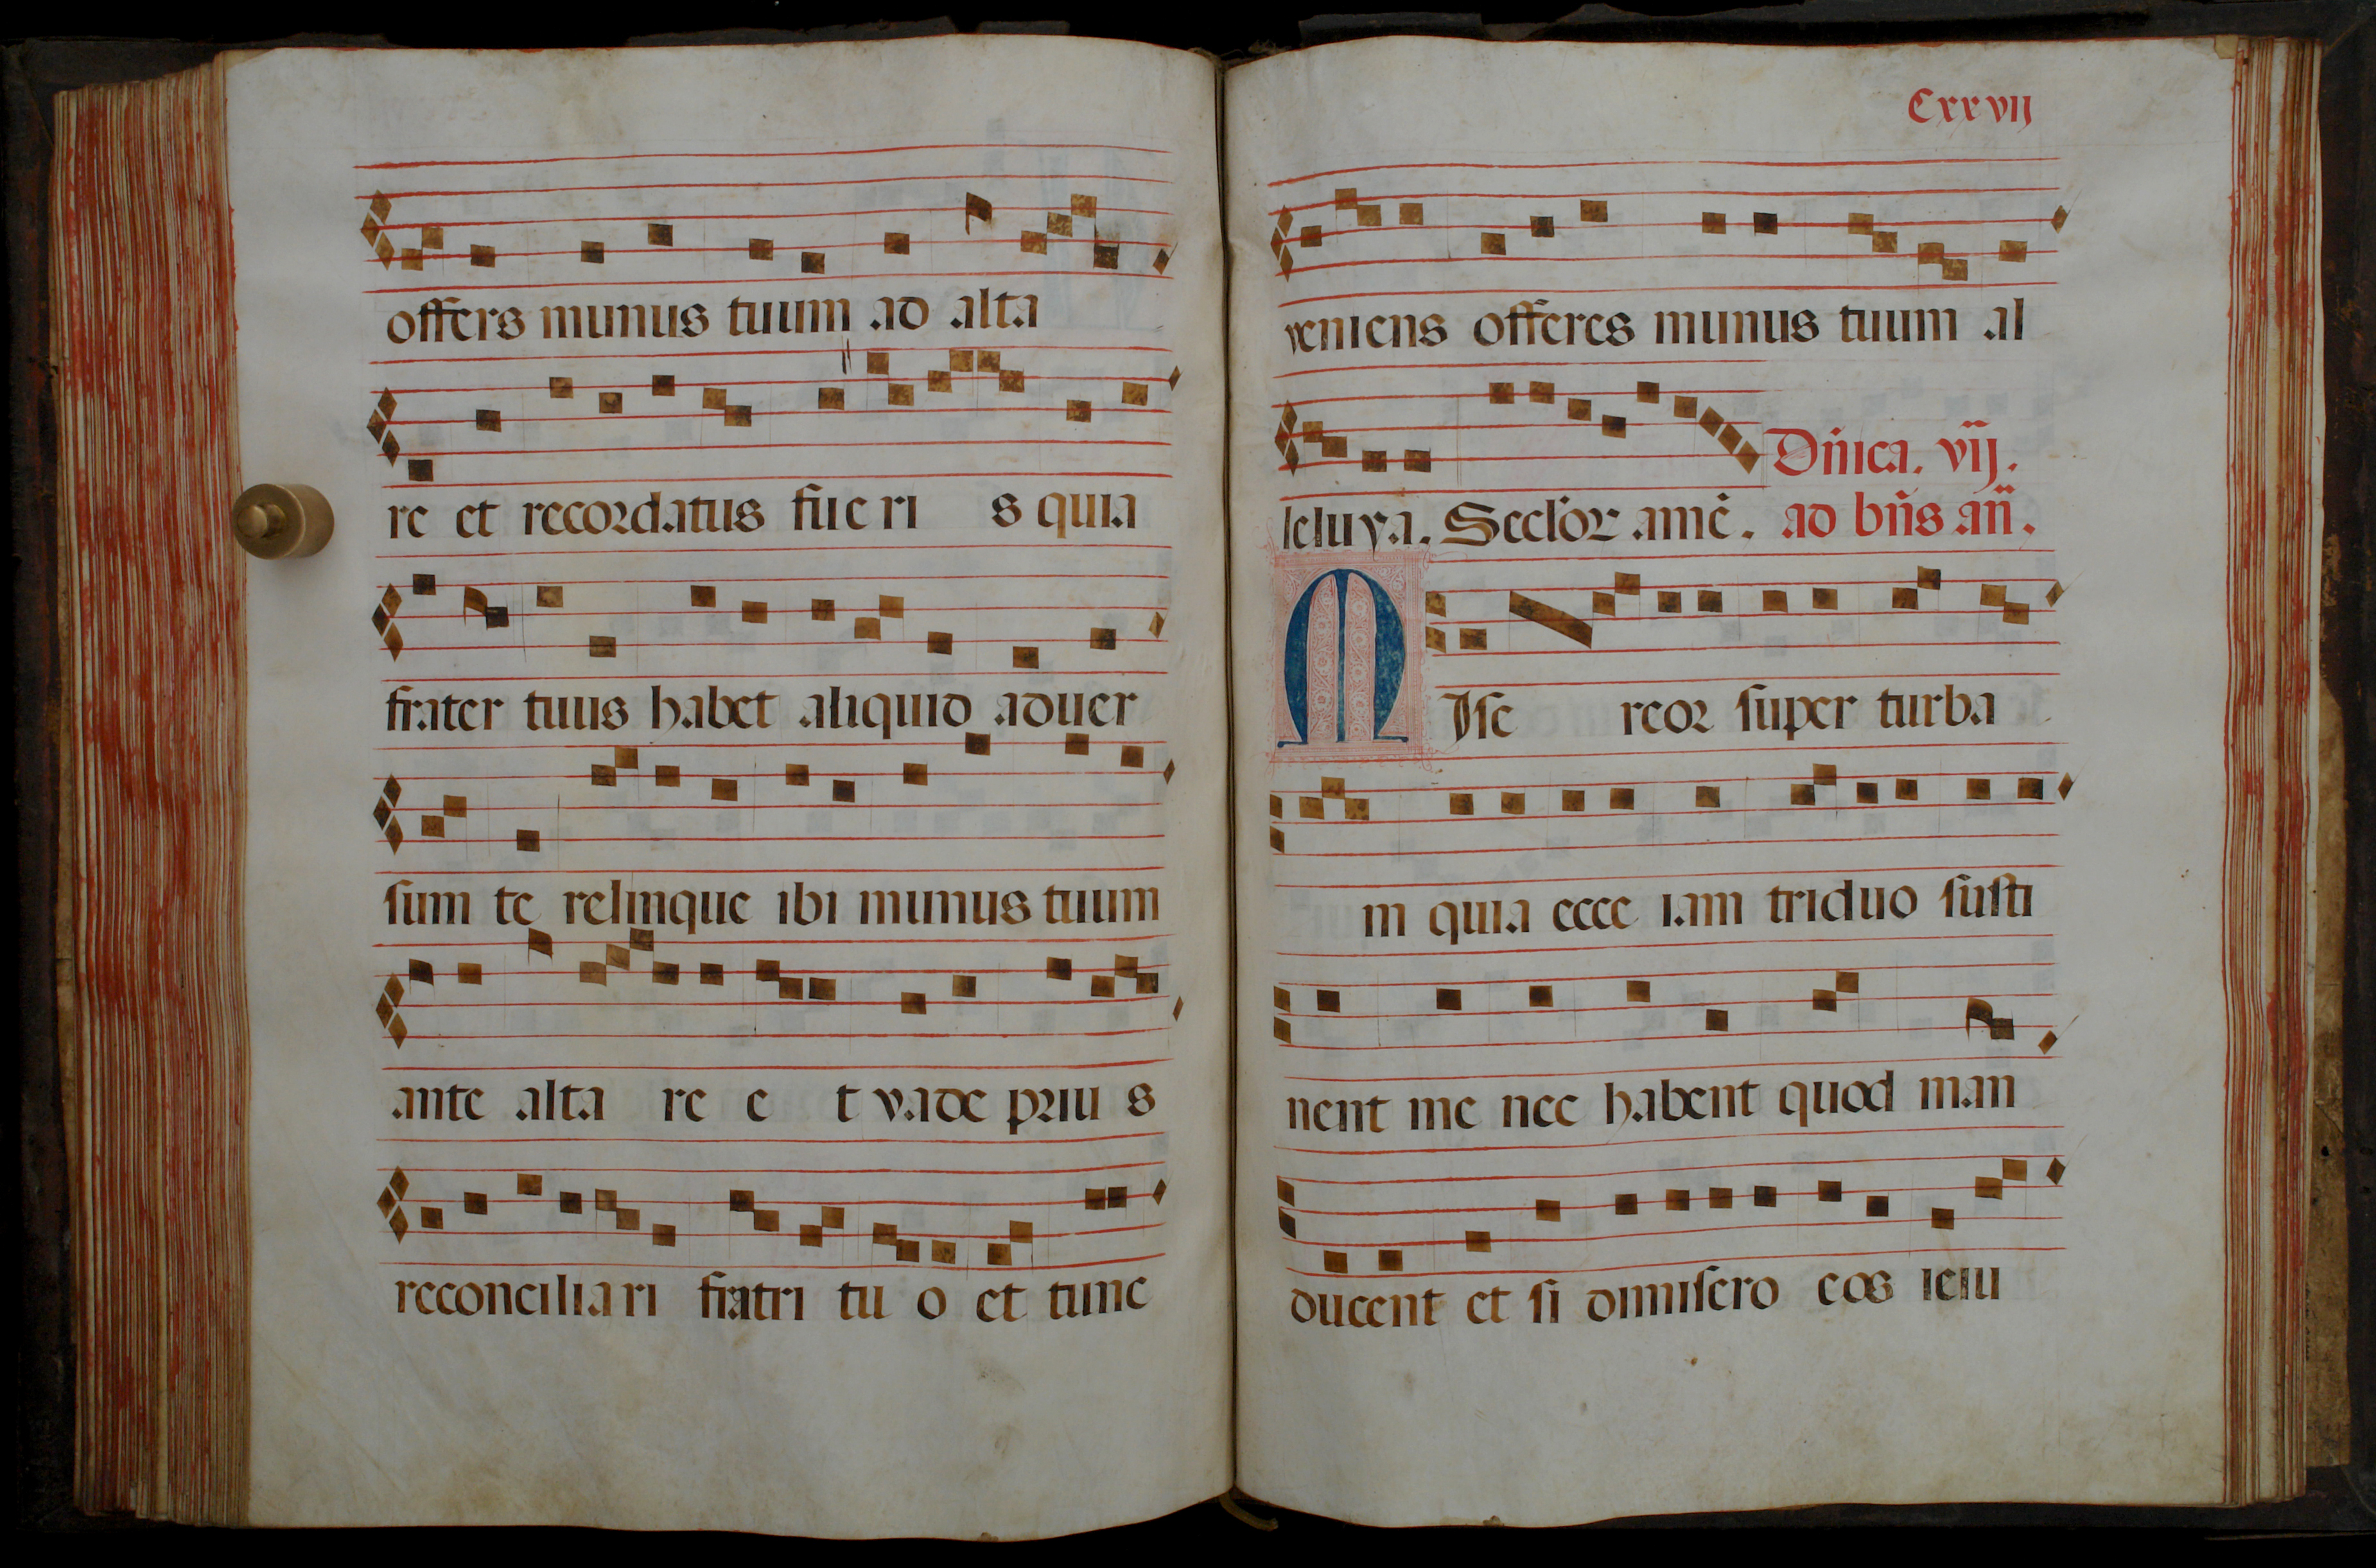 offers munus tuum ad alta
re et recordatus fue ri s quia
frater tuus habet aliquid aduer
sum te relinque ibi munus tuum
ante alta re e t vade priu s
reconciliari fratri tu o et tunc
Cxxvij
veniens offeres munus tuum al
leluya. Secl'oꝝ amē. Dn̄ica. vij.
ad bn̄s an̄.
MIse reor super turba
m quia ecce iam triduo susti
nent me nec habent quod man
ducent et si dimisero eos ieiu